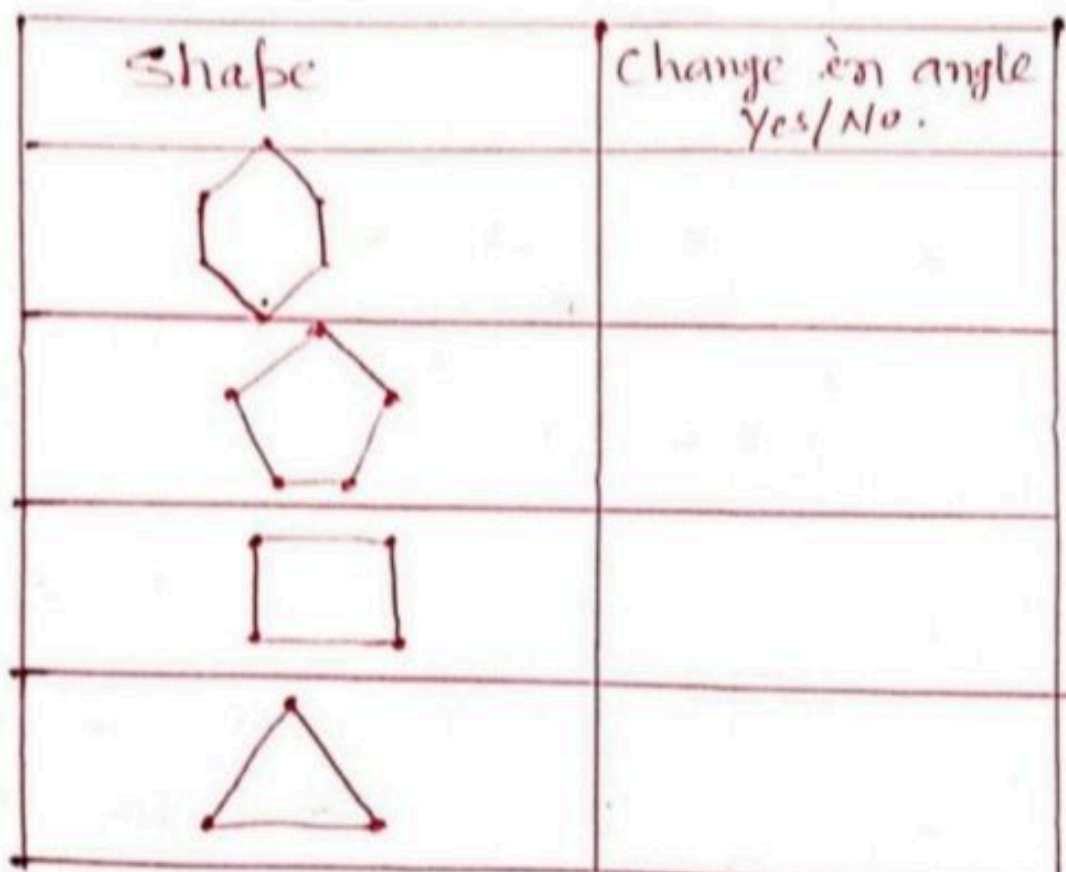 Shape
Change in angle
Yes/No.